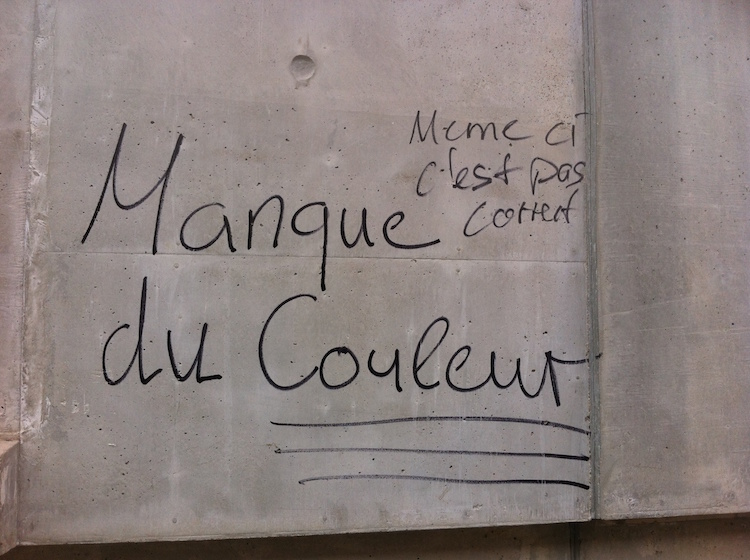 Meme ci
c'est pas
correct
Manque
du Couleur